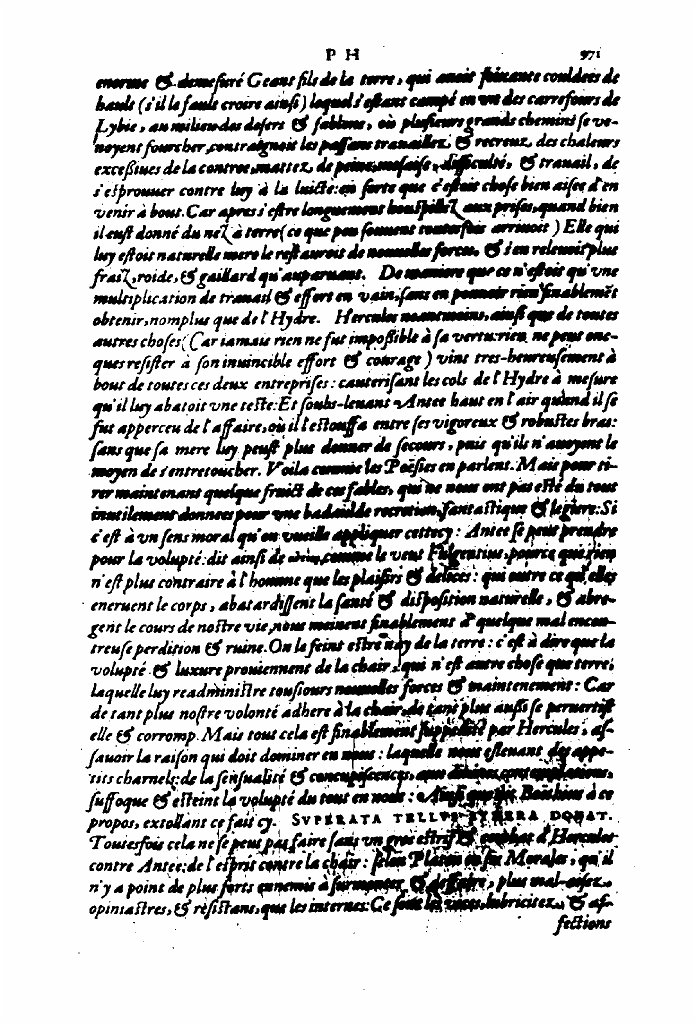 P H 971
enorme & demesuré Geant fils de la terre, qui auoit soixante couldees de
hault (s'il le faule croire ainsi) lequel s'estant campé en vn des carrefours de
Lybie, au milieu des desers & sablons, où plusieurs grands chemins se ve-
noyent fourcher, contraignoit les passans trauaillez & recreuz, des chaleurs
excessiues de la contree, mattez, de peine, mesaise, difficulté, & trauail, de
s'esprouuer contre luy à la luicte: en sorte que c'estoit chose bien aisee d'en
venir à bout. Car apres s'estre longuement houspillez aux prises, quand bien
il eust donné du nez à terre (ce que peu souuent toutesfois arriuoit) Elle qui
luy estoit naturelle mere le restauroit de nouuelles forces, & s'en releuoit plus
fraiz, roide, & gaillard qu'auparauant. De maniere que ce n'estoit qu'vne
multiplication de trauail & effort en vain, sans en pouuoir rien finablemẽt
obtenir, nomplus que de l'Hydre. Hercules neantmoins, ainsi que de toutes
autres choses (Car iamais rien ne fut impossible à sa vertu: rien ne peut onc-
ques resister à son inuincible effort & courage) vint tres-heureusement à
bout de toutes ces deux entreprises: cauterisant les cols de l'Hydre à mesure
qu'il luy abatoit vne teste: Et soubs-leuant Antee haut en l'air quand il se
fut apperceu de l'affaire, où il l'estouffa entre ses vigoreux & robustes bras:
sans que sa mere luy peust plus donner de secours, puis qu'ils n'auoyent le
moyen de s'entretoucher. Voila comme les Poësies en parlent. Mais pour ti-
rer maintenant quelque fruict de ces fables, qui ne nous ont pas esté du tout
inutilement donnees pour vne recreation, fantastique & legiere: Si
c'est à vn sens moral qu'on vueille appliquer cettecy: Antee se peut prendre
pour la volupté: dit ainsi de comme le veut Fulgentius, pource que rien
n'est plus contraire à l'homme que les plaisirs & delices: qui outre ce qu'elles
eneruent le corps, abatardissent la santé & disposition naturelle, & abre-
gent le cours de nostre vie, nous meinent finablement à quelque mal encon-
treuse perdition & ruine. On le feint estre nay de la terre: c'est à dire que la
volupté & luxure prouiennent de la chair, qui n'est autre chose que terre,
laquelle luy readministre tousiours nouuelles forces & maintenement: Car
de tant plus nostre volonté adhere à la chair, de tant plus aussi se peruertist
elle & corromp. Mais tout cela est finablement suppedité par Hercules, as-
sauoir la raison qui doit dominer en nous: laquelle nous esleuant des appe-
tits charnels: de la sensualité & concupiscences, aux diuines contemplations,
suffoque & esteint la volupté du tout en nous: Ainsi que dit Boëthius à ce
propos, extollant ce fait cy. SVPERATA TELLVS SYDERA DONAT.
Toutesfois cela ne se peut pas faire sans vn gros estrif & combat d'Hercules
contre Antee: de l'esprit contre la chair: selon Platon en ses Morales, qu'il
n'y a point de plus forts ennemis à surmonter & deffaire, plus mal-aisez,
opiniastres, & resistans, que les internes: Ce sont les vices, lubricitez, & af-
fections